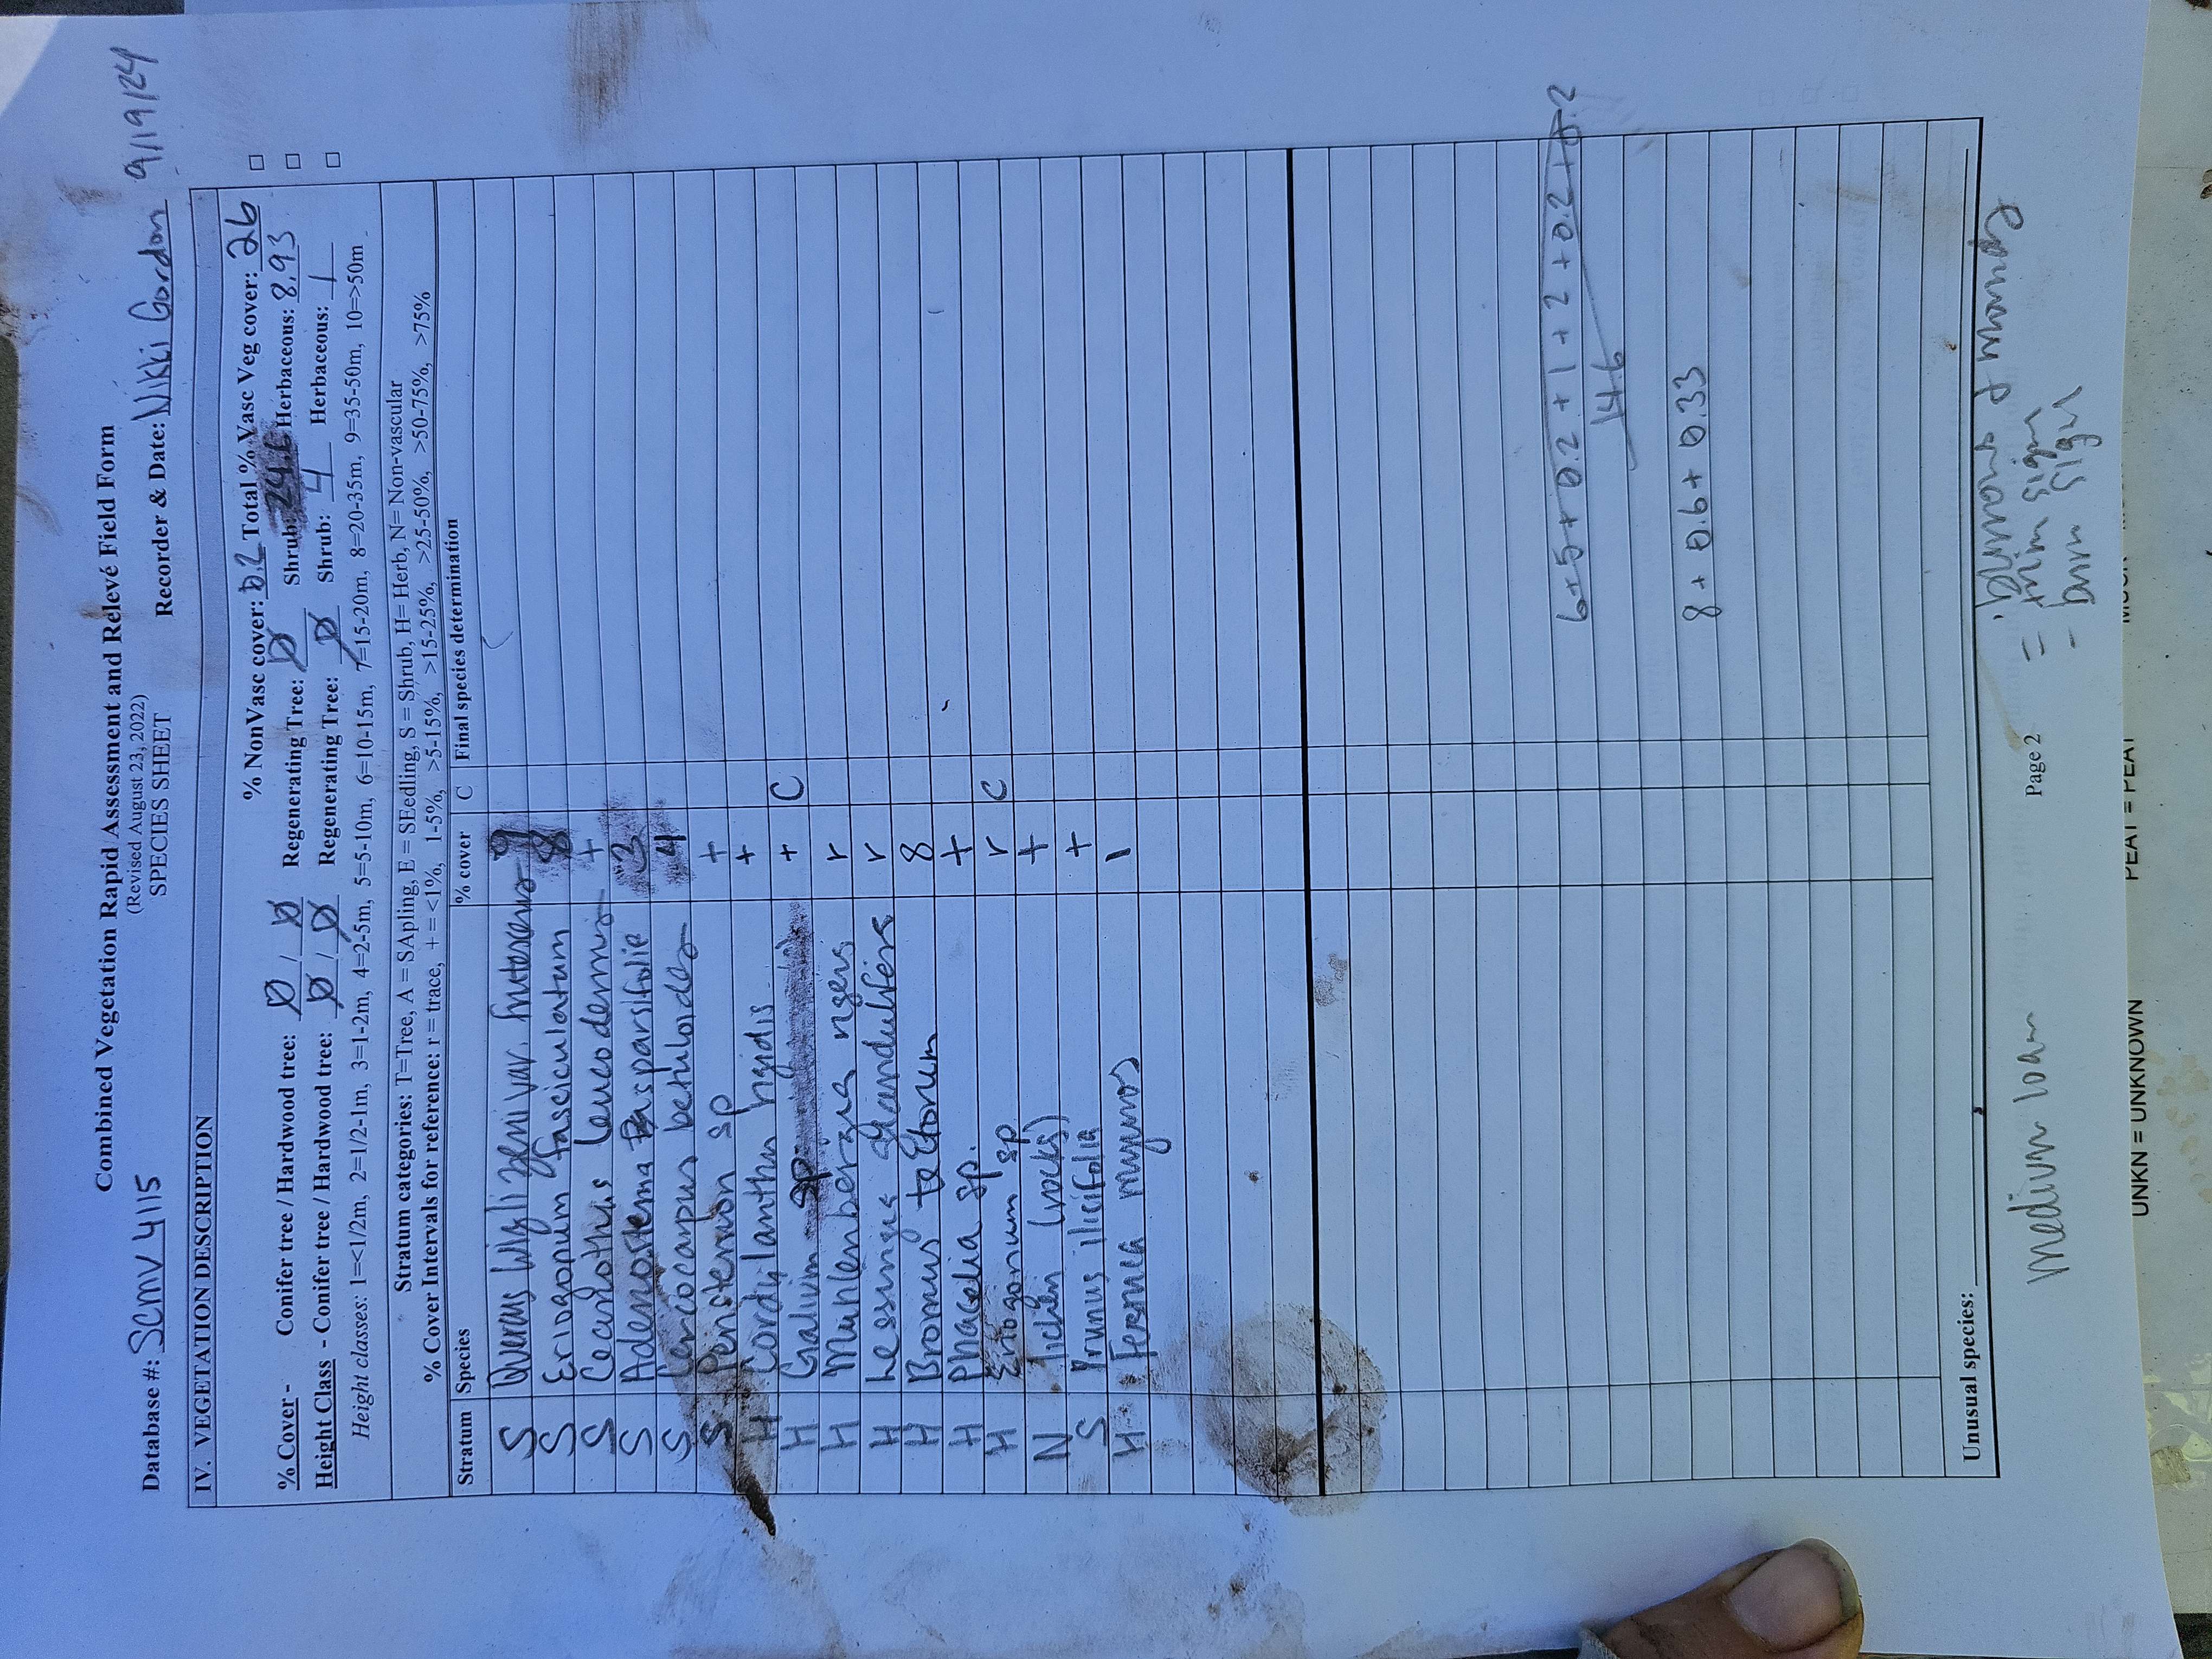 Combined Vegetation Rapid Assessment and Relevé Field Form
(Revised August 23, 2022)
SPECIES SHEET
Database #: SCMV4115 Recorder & Date: Nikki Gordon 9/19/24
IV. VEGETATION DESCRIPTION
% NonVasc cover: 0.2 Total % Vasc Veg cover: 26
% Cover - Conifer tree / Hardwood tree: Ø / Ø Regenerating Tree: Ø Shrub: 24.6 Herbaceous: 8.93
Height Class - Conifer tree / Hardwood tree: Ø / Ø Regenerating Tree: Ø Shrub: 4 Herbaceous: 1
Height classes: 1=<1/2m, 2=1/2-1m, 3=1-2m, 4=2-5m, 5=5-10m, 6=10-15m, 7=15-20m, 8=20-35m, 9=35-50m, 10=>50m
Stratum categories: T=Tree, A = SApling, E = SEedling, S = Shrub, H= Herb, N= Non-vascular
% Cover Intervals for reference: r = trace, + = <1%, 1-5%, >5-15%, >15-25%, >25-50%, >50-75%, >75%
Stratum Species % cover C Final species determination
S Quercus wislizeni var. frutescens 9
S Eriogonum fasciculatum 8
S Ceanothus leucodermis +
S Adenostema sparsifolia 3
S Cercocarpus betuloides 4
S Penstemon sp +
H Cordylanthus rigidis +
H Galium sp + C
H Muhlenbergia rigens r
H Lessingia glandulifera r
H Bromus tectorum 8
H Phacelia sp. +
H Eriogonum sp r C
N lichen (rocks) +
S Prunus ilicifolia +
H Festuca myuros 1
6+5+0.2+1+2+0.2+0.2
14.6
8+0.6+0.33
Unusual species:
Page 2
medium loam
burrows & mounds
= trim sign
- burn sign
UNKN = UNKNOWN PEAT = PEAT